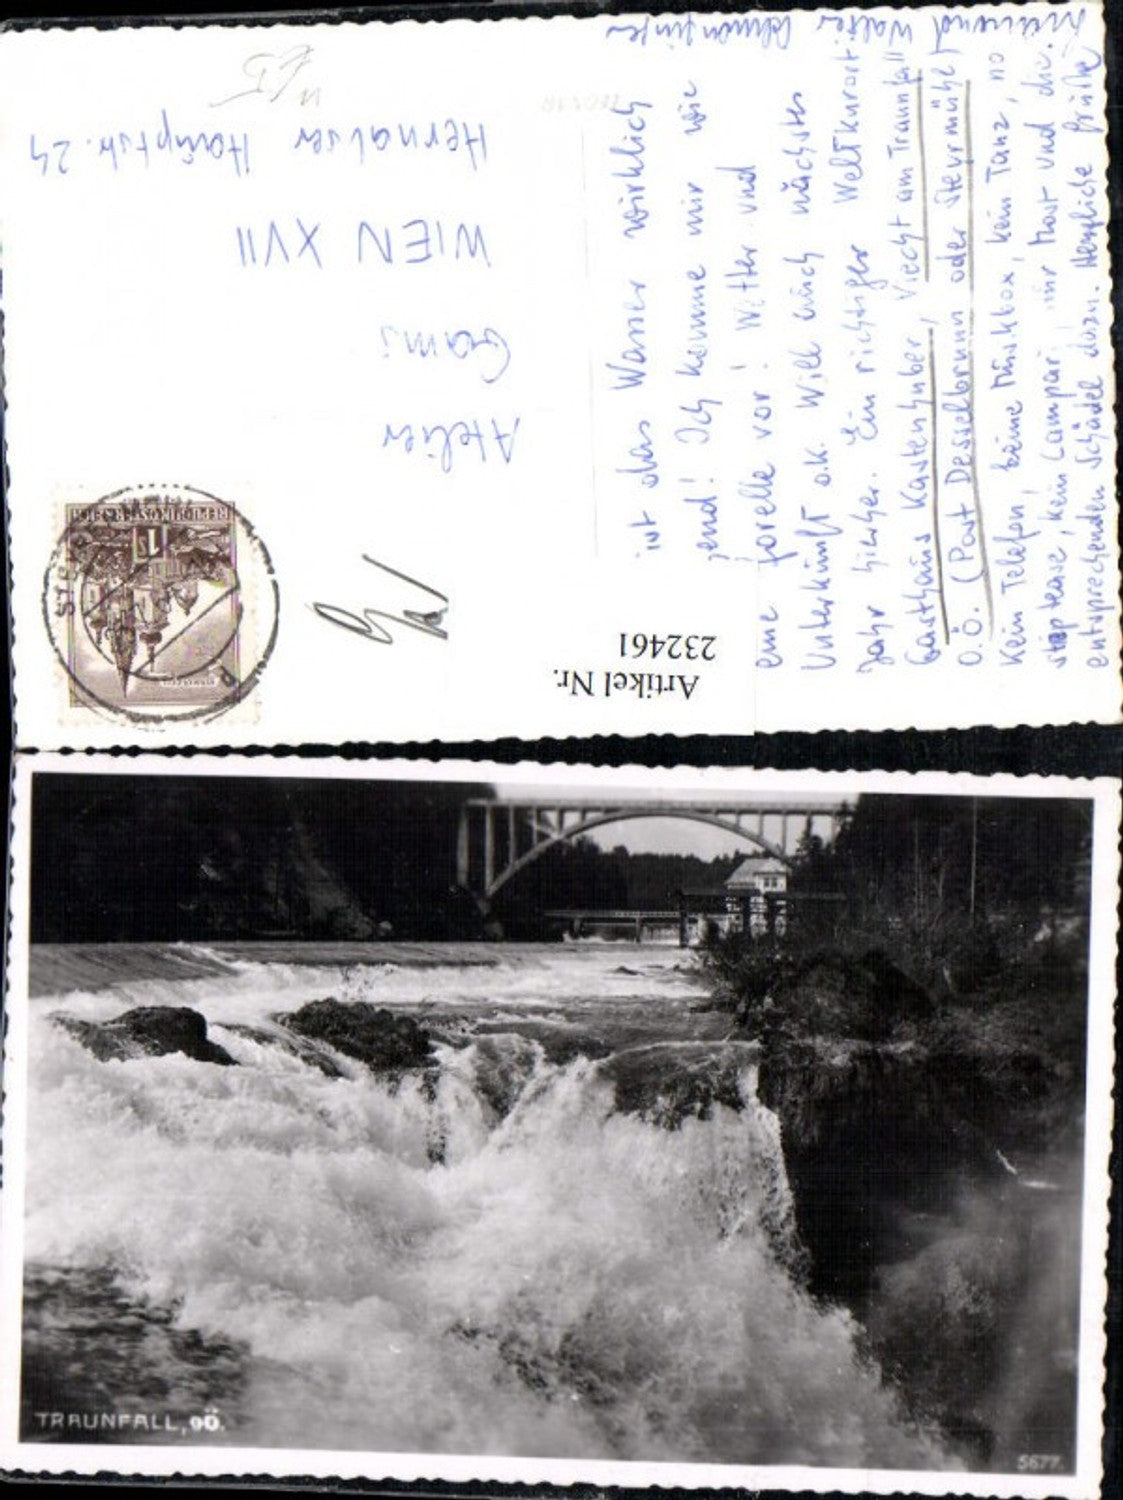 Artikel Nr.
232461
REPUBLIK ÖSTERREICH
1
Atelier
Gams
WIEN XVII
Hernalser Hauptstr. 24
ist das Wasser wirklich
Ich komme mir wie
eine Forelle vor! Wetter und
Unterkunft o.k. Will auch nächstes
Jahr hierher. Ein richtiger Weltkurort:
Gasthaus Kastenhuber, Viecht am Traunfall
O.Ö. (Post Desselbrunn oder Steyrmühl)
Kein Telefon, keine Musikbox, kein Tanz, no
strip tease, kein Campari, nur Most und die
entsprechenden Schädel dazu. Herzliche Grüße
Walter
TRAUNFALL, OÖ.
5677.